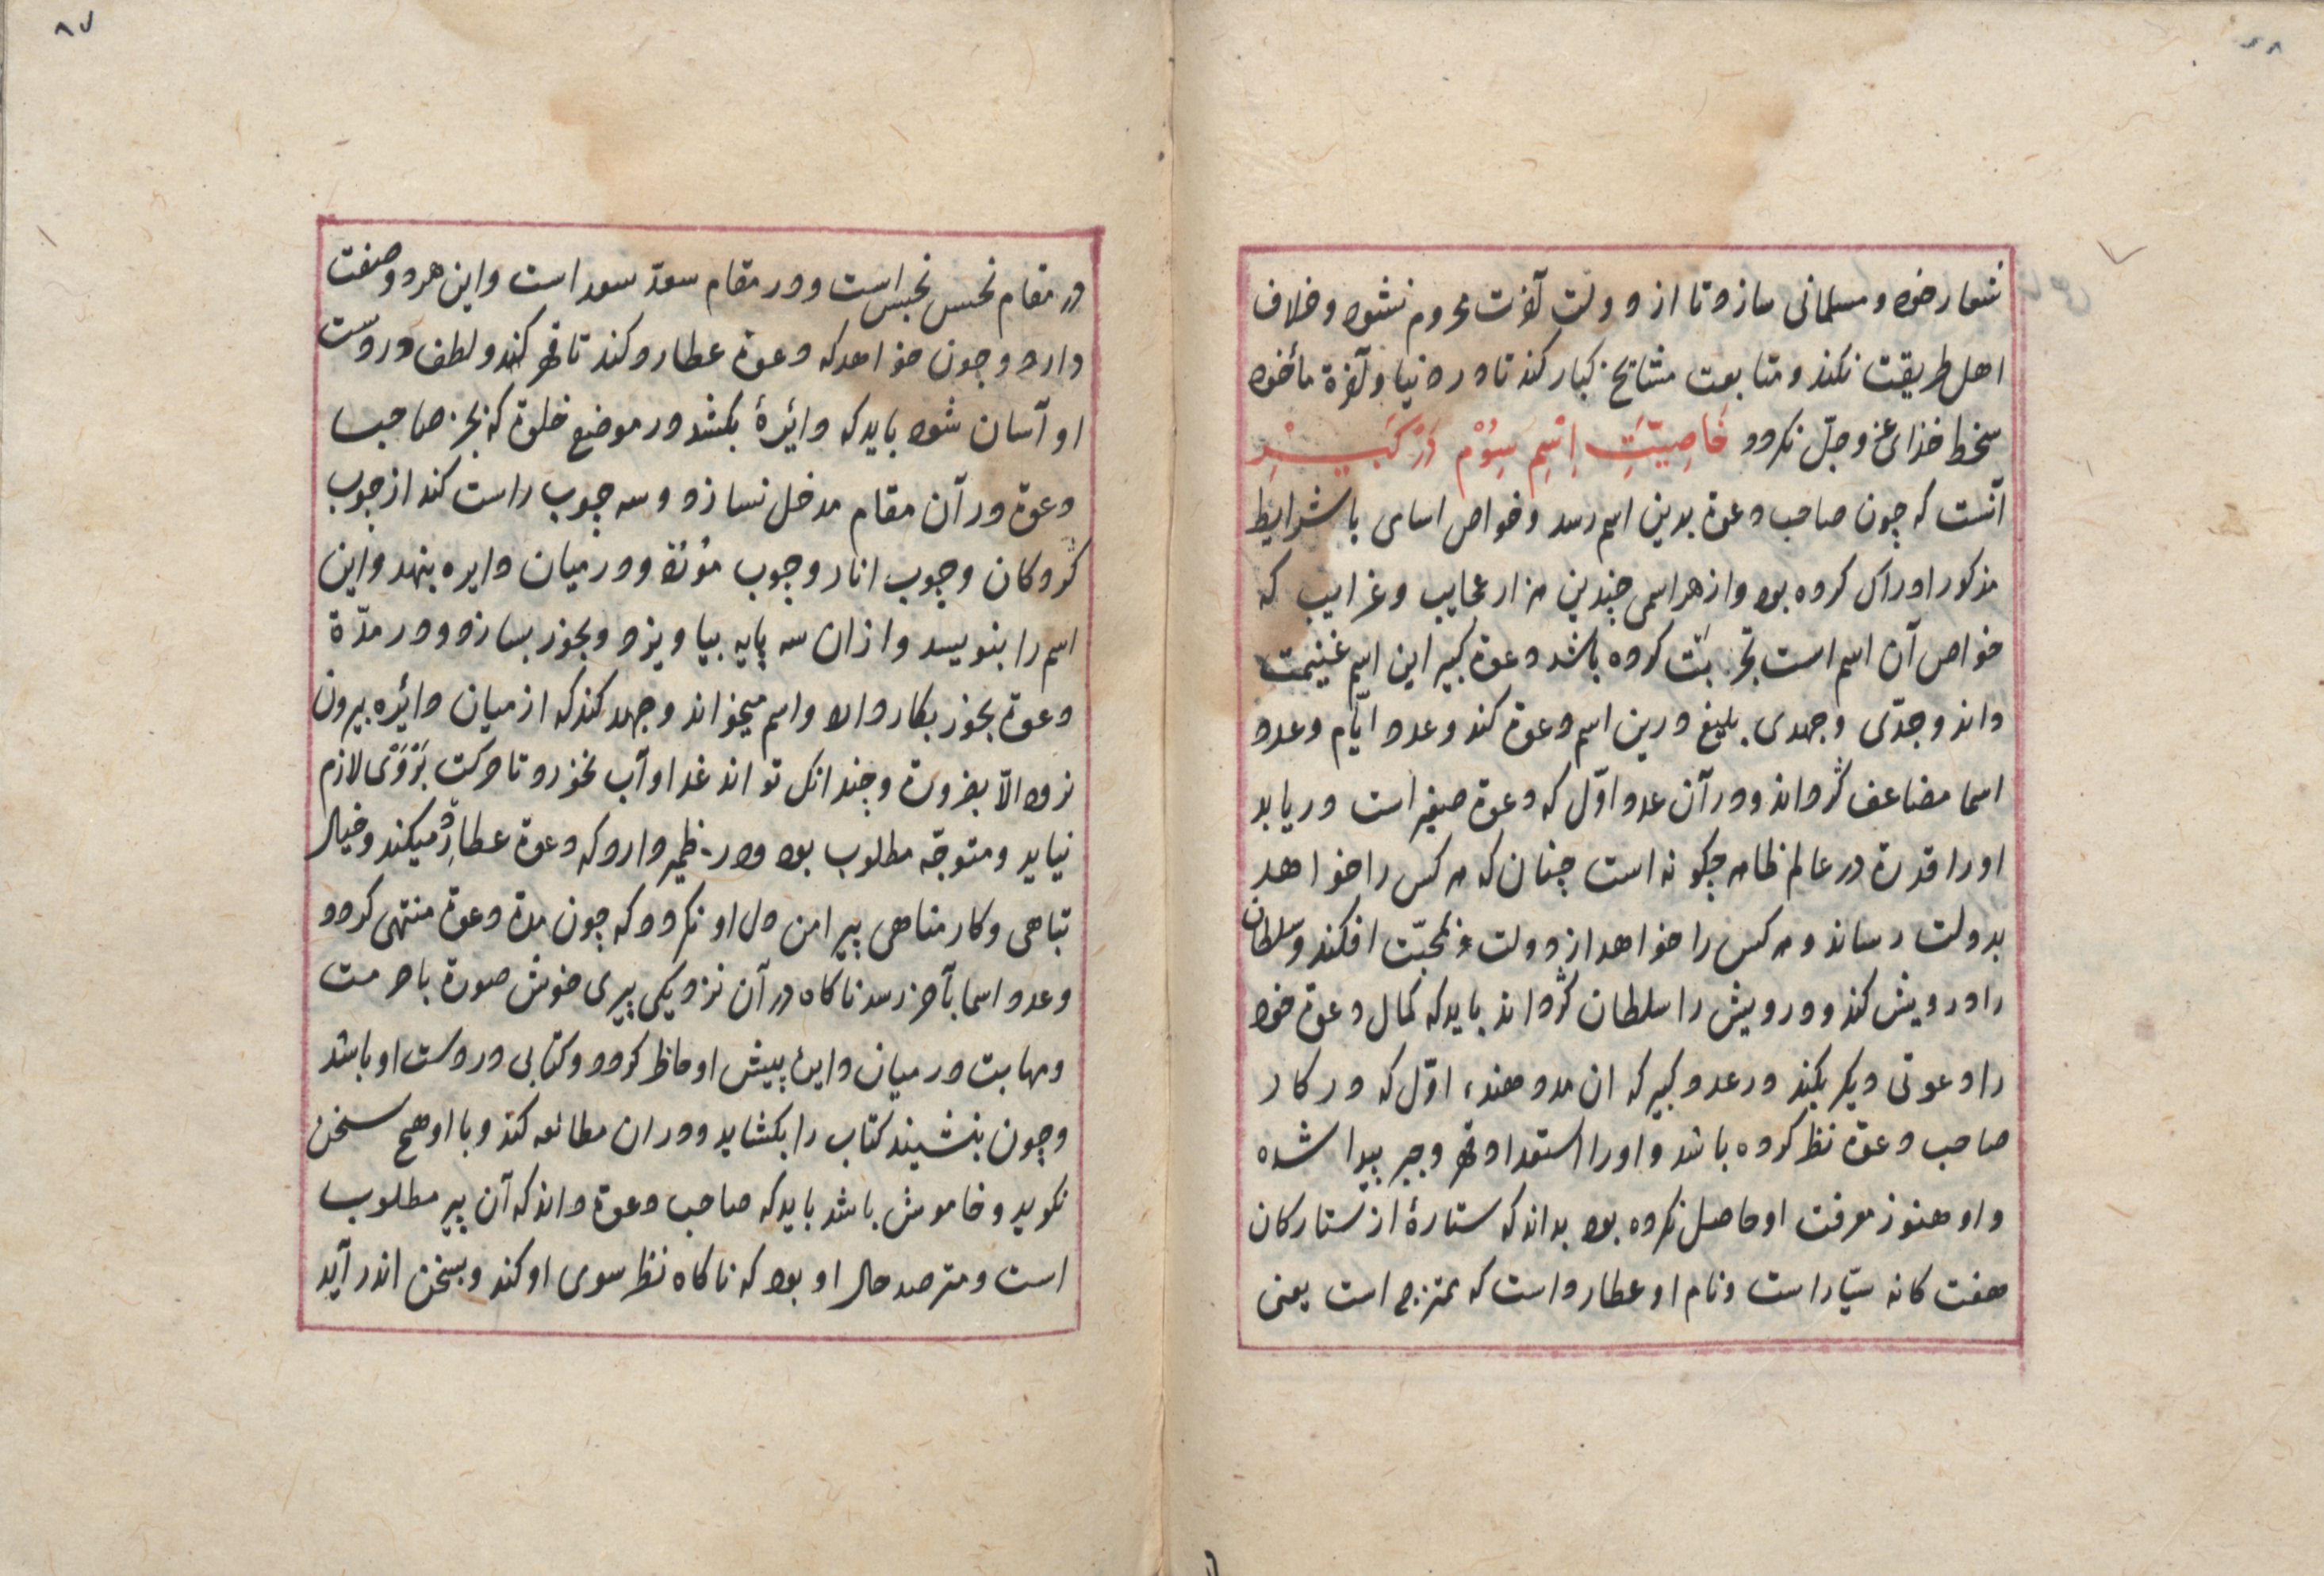 شعار خود و مسلمانی سازد تا از دولت آخرت محروم نشود و خلاف
اهل طریقت نکند و متابعت مشایخ کبار کند تا در دنیا و آخرة مأخوذ
سخط خدای عز و جلّ نکردد خَاصِیَّتِ اِسْمِ سِوُمْ دَرْ کَبِیْرِ
آنست که چون صاحب دعوة بدین اسم رسد و خواص اسامی با شرایط
مذکور ادراک کرده بود و از هر اسمی جندین هزار عجایب و غرایب که
خواص آن اسم است تجربت کرده باشد دعوة کبیر این اسم غنیمت
داند و جدّی و جهدی بلیغ درین اسم دعوة کند و عدد ایّام و عدد
اسما مضاعف کرداند و در آن عدد اوّل که دعوة صغیر است دریابد
او را قدرة در عالم ظاهر جکونه است چنان که هر کس را خواهد
بدولت رساند و هر کس را خواهد از دولت محبّت افکند و سلطان
را درویش کند و درویش را سلطان کرداند باید که کمال دعوة خود
را دعوتی دیکر بکند در عدد کبیر که ان مدد دهنده اوّل که در کار
صاحب دعوة نظر کرده باشد و او را استعداد قهر و جبر پیدا شده
و او هنوز معرفت او حاصل نکرده بود بداند که ستارهٔ از ستارکان
هفت کانه سیّار است و نام او عطارد است که ممتزج است یعنی
در مقام نحس نحس است و در مقام سعد سعد است و این هر دو صفت
دارد و جون خواهد که دعوة عطارد کند تا قهر کند و لطف در دست
او آسان شود باید که دائرهٔ بکشد در موضع خلوة که بجز صاحب
دعوة در آن مقام مدخل نسازد و سه جوب راست کند از جوب
کردکان و جوب انار و جوب و در میان دایره بنهد و این
اسم را بنویسد و از ان سه پایه بیاویزد و بخور بسازد و در مدّة
دعوة بخور بکار دارد و اسم میخواند و جهد کند که از میان دائره بیرون
نرود الّا بضرورة و جندانک تواند غدا و آب نخورد تا حرکت بَرْوَیْ لازم
نیاید و متوجّه مطلوب بود و در ضمیر دارد که دعوة عطارد میکند و خیال
تباهی و کار مناهی پیرامن دل او نکردد که چون مدة دعوة منتهی کردد
و عدد اسما بآخر رسد ناکاه در آن نزدیکی پیری خوش صورة با حرمت
و مهابت در میان دایره پیش او حاظر کردد و کتابی در دست او باشد
و چون بنشیند کتاب را بکشاید و در ان مطالعه کند و با او هیچ سخن
نکوید و خاموش باشد باید که صاحب دعوة داند که آن پیر مطلوب
است و مترصد حال او بود که ناکاه نظر سوی او کند و بسخن اندر آید